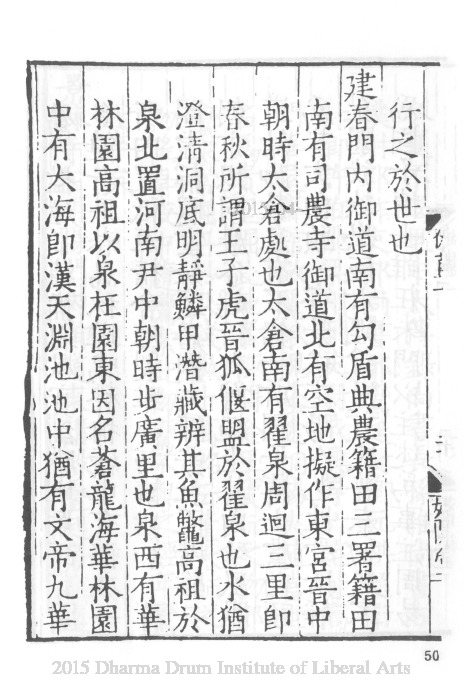 行之於世也
建春門內御道南有勾盾典農籍田三署籍田
南有司農寺御道北有空地擬作東宮晉中
朝時太倉處也太倉南有翟泉周迴三里卽
春秋所謂王子虎晉狐偃盟於翟泉也水猶
澄清洞底明靜鱗甲潛藏辨其魚鼈高祖於
泉北置河南尹中朝時步廣里也泉西有華
林園高祖以泉在園東因名蒼龍海華林園
中有大海卽漢天淵池池中猶有文帝九華
50
2015 Dharma Drum Institute of Liberal Arts